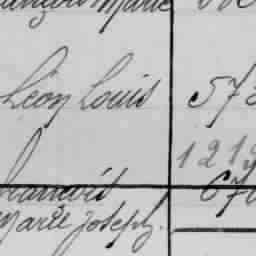 Marie
Léon Louis 573
121
François 670
Marie Joseph.